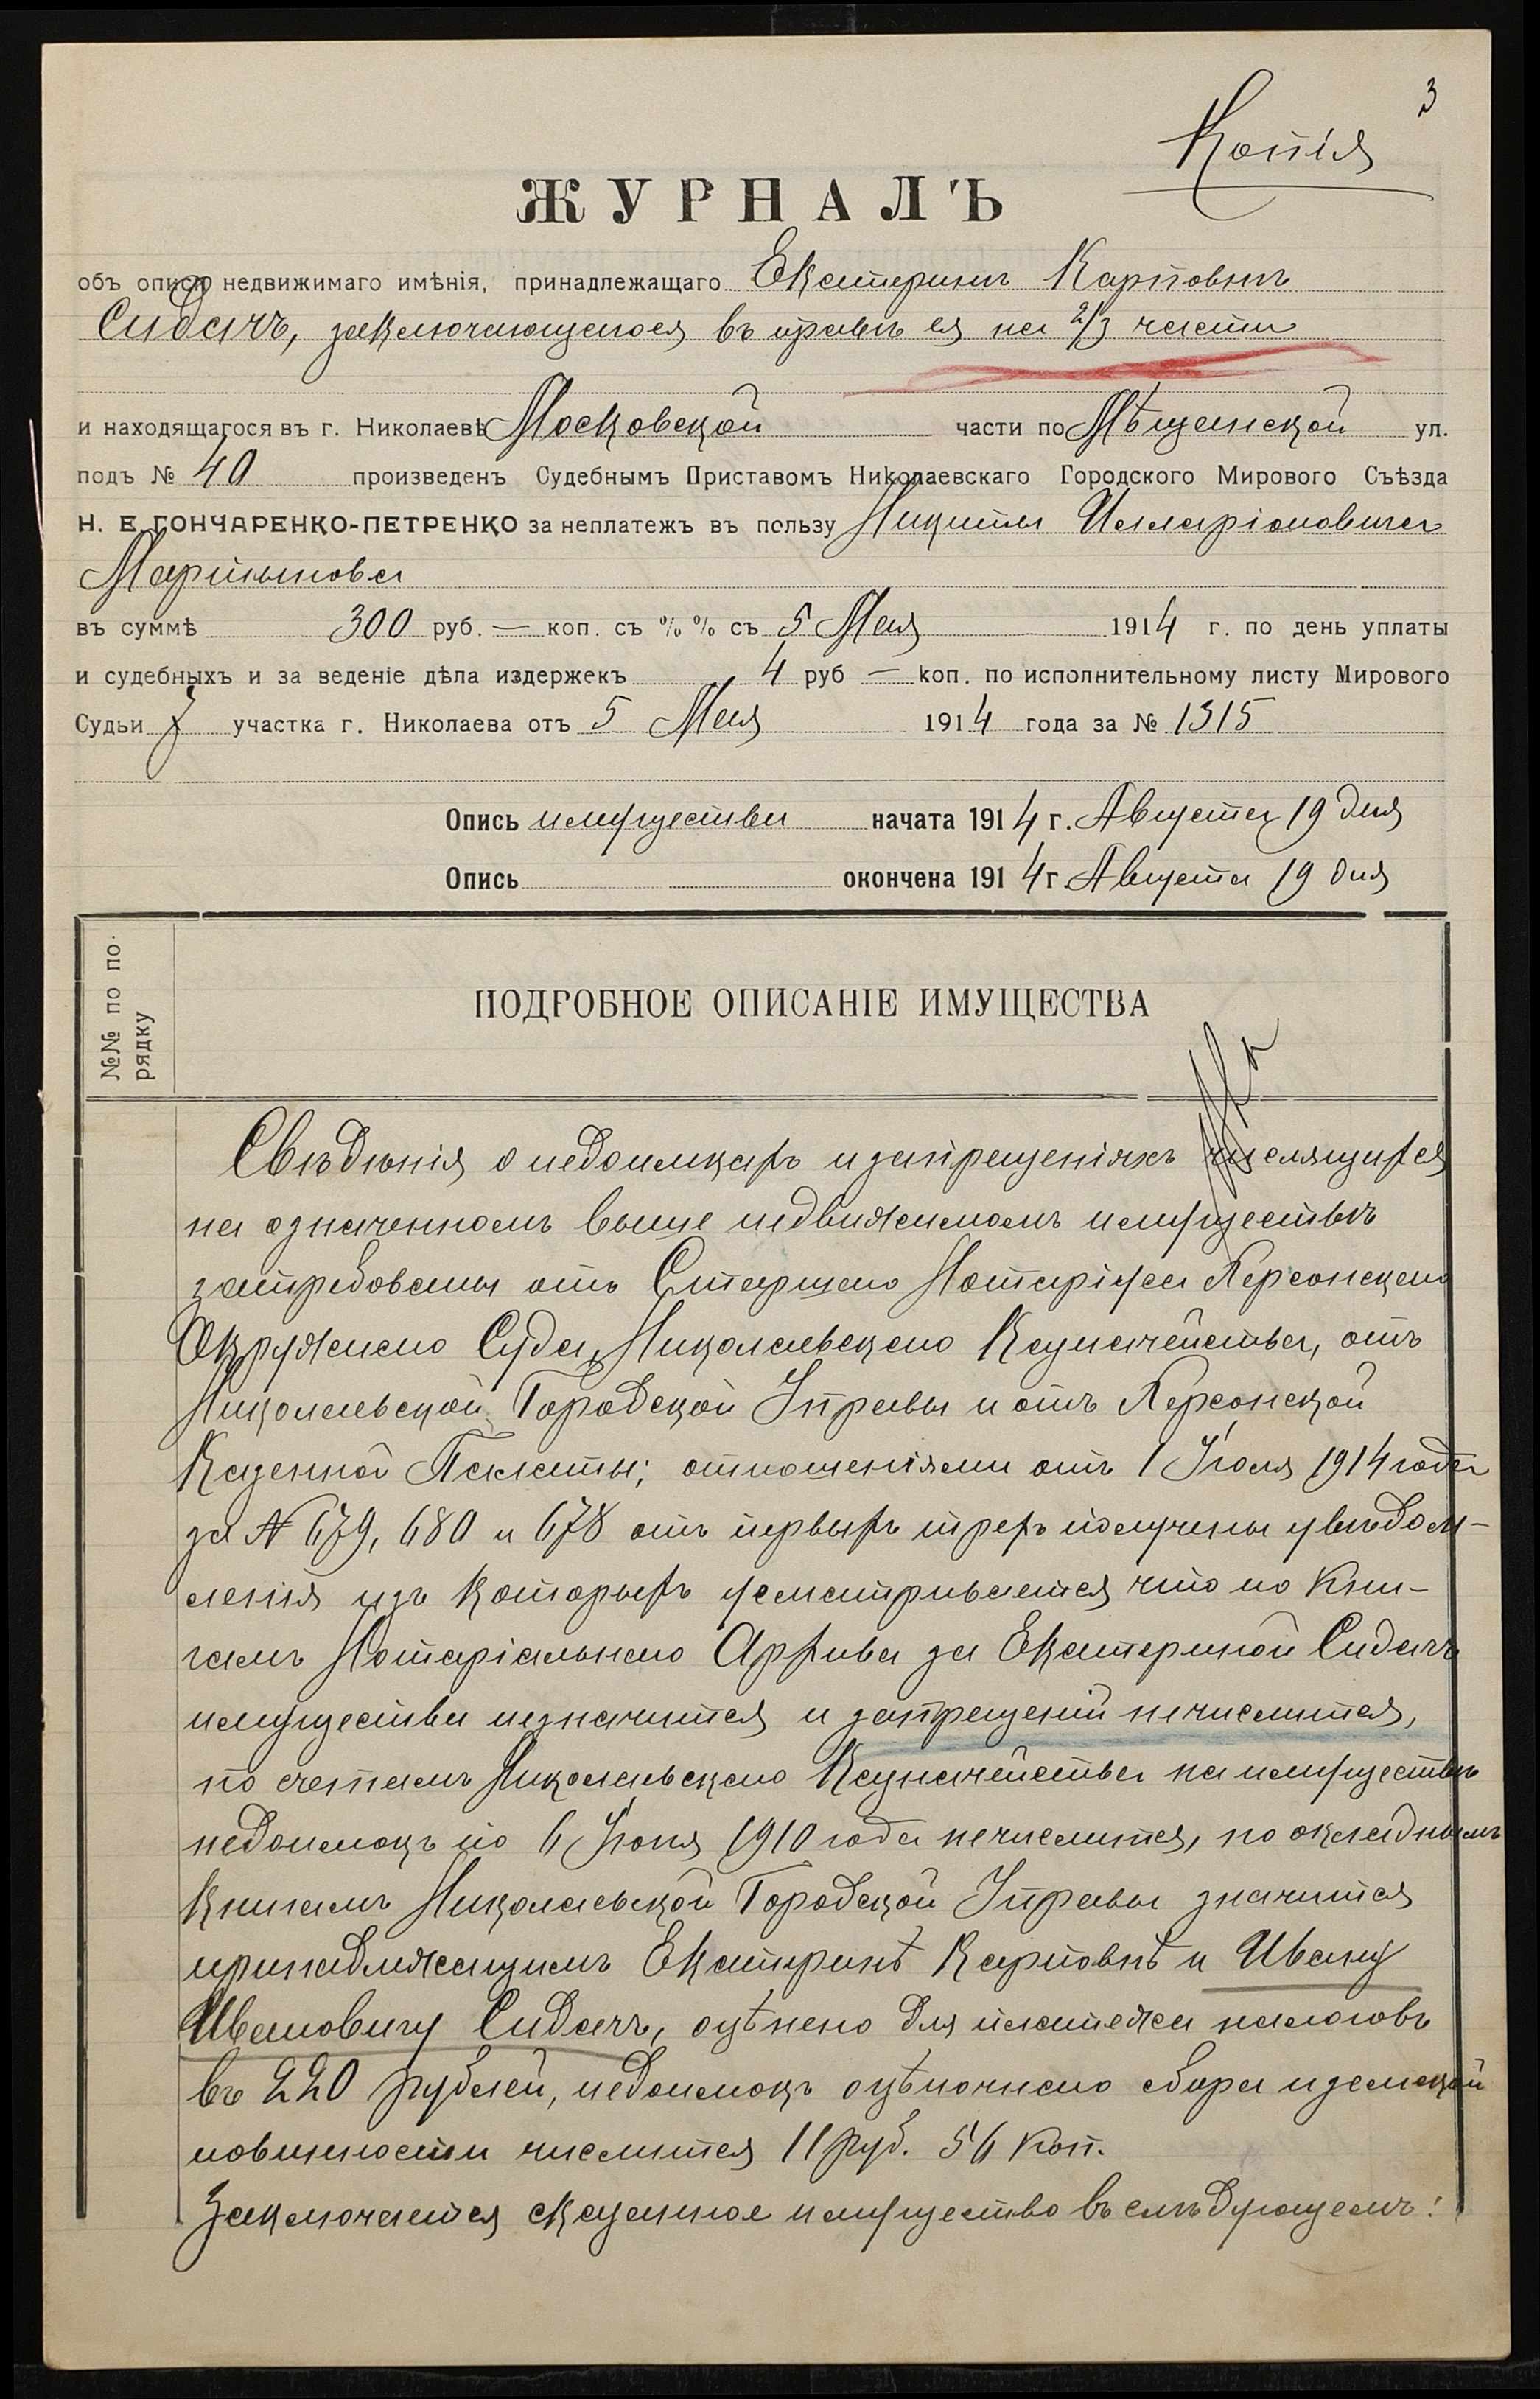 3
Копія
ЖУРНАЛЪ
объ описи недвижимаго имѣнія, принадлежащаго Екатеринѣ Карповнѣ
Сидачъ, заключающегося въ правѣ ея на 2/3 части
и находящагося въ г. Николаевѣ Московской части по Мѣщанской ул.
подъ № 40 произведенъ Судебнымъ Приставомъ Николаевскаго Городского Мирового Съѣзда
Н. Е. ГОНЧАРЕНКО-ПЕТРЕНКО за неплатежъ въ пользу Никиты Илларіоновича
Мартынова
въ суммѣ 300 руб. — коп. съ %% съ 5 Мая 1914 г. по день уплаты
и судебныхъ и за веденіе дѣла издержекъ 4 руб — коп. по исполнительному листу Мирового
Судьи 7 участка г. Николаева отъ 5 Мая 1914 года за № 1315
Опись имущества начата 1914 г. Августа 19 дня
Опись окончена 1914 г. Августа 19 дня
№№ по по-
рядку
ПОДРОБНОЕ ОПИСАНІЕ ИМУЩЕСТВА
Свѣдѣнія о недоимкахъ и запрещеніяхъ числящихся
на означенномъ выше недвижимомъ имуществѣ
затребованы отъ Старшаго Нотаріуса Херсонскаго
Окружнаго Суда, Николаевскаго Казначейства, отъ
Николаевской Городской Управы и отъ Херсонской
Казенной Палаты; отношеніями отъ 1 Іюля 1914 года
за № 679, 680 и 678 отъ первыхъ трехъ получены увѣдом-
ленія изъ которыхъ усматривается что по кни-
гамъ Нотаріальнаго Архива за Екатериной Сидачъ
имущества незначится и запрещеній нечислится,
по счетамъ Николаевскаго Казначейства на имуществѣ
недоимокъ по 6 Іюня 1910 года нечислится, по окладнымъ
книгамъ Николаевской Городской Управы значится
принадлежащимъ Екатеринѣ Карповнѣ и Ивану
Ивановичу Сидачъ, оцѣнено для платежа налоговъ
въ 220 рублей, недоимокъ оцѣночнаго сбора и земской
повинности числится 11 руб. 56 коп.
Заключается сказанное имущество въ слѣдующемъ: